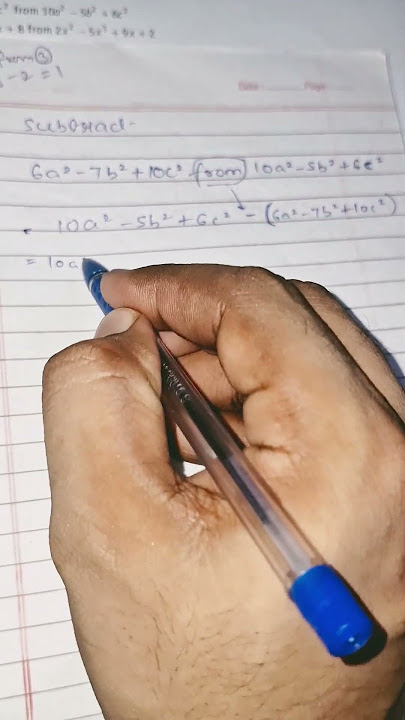 c² from 10a² - 5b² + 6c²
+ 8 from 2x³ - 5x² + 9x + 2
- 2 = 1
Date: Page:
Subtract-
6a² - 7b² + 10c² from 10a² - 5b² + 6c²
10a² - 5b² + 6c² - (6a² - 7b² + 10c²)
= 10a